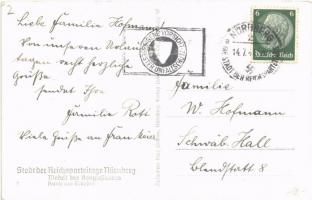 Liebe Familie Hofmann!
Von unseren Urlaub-
tagen recht herzliche
Grüße
sendet Ihre
Familie Rott
Viele Grüße an Frau
Stadt der Reichsparteitage Nürnberg
Modell des Kongreßbaues
NÜRNBERG
14.7.
STADT DER REICHSPARTEITAGE
6 6
Deutsches Reich
Familie
W. Hofmann
Schwäb. Hall
Blendstatt 8